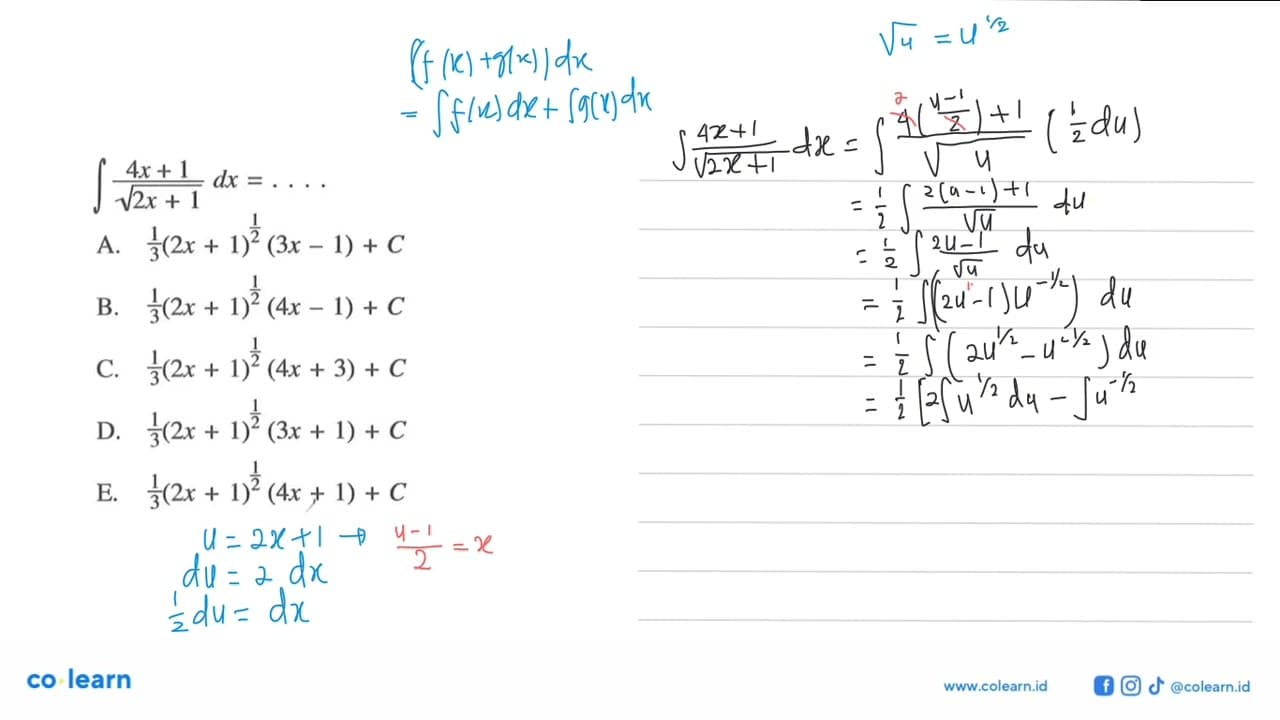 (f(x)+g(x)) dx
= ∫f(x) dx + ∫g(x) dx
∫ (4x + 1)/√(2x + 1) dx = . . . .
A. 1/3(2x + 1)^(1/2) (3x – 1) + C
B. 1/3(2x + 1)^(1/2) (4x – 1) + C
C. 1/3(2x + 1)^(1/2) (4x + 3) + C
D. 1/3(2x + 1)^(1/2) (3x + 1) + C
E. 1/3(2x + 1)^(1/2) (4x + 1) + C
u = 2x+1 → (u-1)/2 = x
du = 2 dx
1/2 du = dx
√u = u^(1/2)
∫ (4x+1)/√(2x+1) dx = ∫ (4((u-1)/2)+1)/√u (1/2 du)
2
= 1/2 ∫ (2(u-1)+1)/√u du
= 1/2 ∫ (2u-1)/√u du
= 1/2 ∫((2u¹-1)u^(-1/2)) du
= 1/2 ∫(2u^(1/2) - u^(-1/2)) du
= 1/2 [2∫u^(1/2) du - ∫u^(-1/2)
co learn
www.colearn.id
@colearn.id